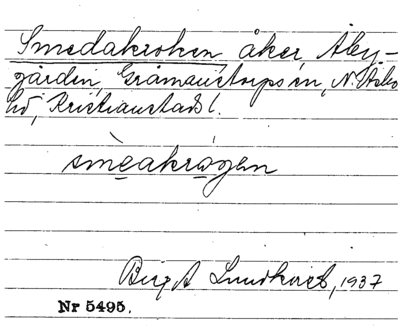 Smedakroken åker, Åby-
gården, Gråmanstorps sn, N. Åsbo
hd, Kristianstads l.
smèakrøgen
Birgit Lundkvist, 1937
Nr 5495.